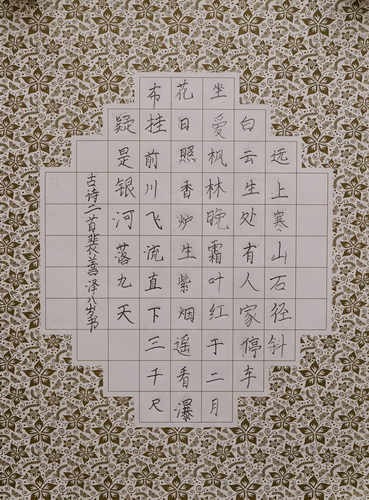 远上寒山石径斜
白云生处有人家停车
坐爱枫林晚霜叶红于二月
花日照香炉生紫烟遥看瀑
布挂前川飞流直下三千尺
疑是银河落九天
古诗二首裴善泽八岁书